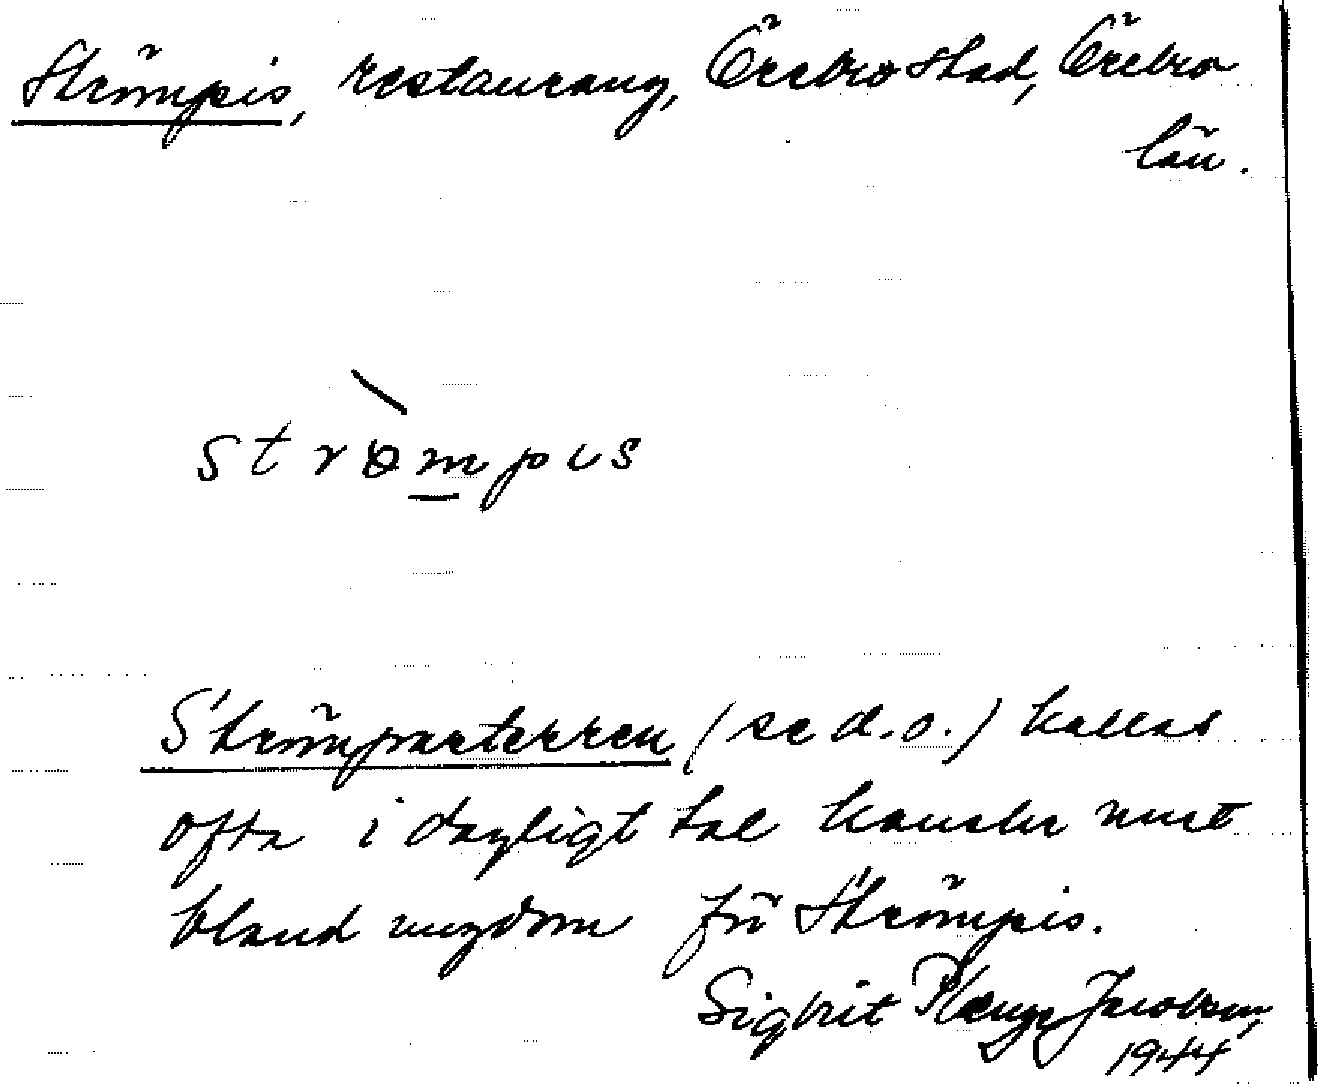 Strömpis, restaurang, Örebro stad, Örebro
län.
strömpis
Strömparterren (se d.o.) kallas
ofta i dagligt tal kanske mest
bland ungdom för Strömpis.
Sigbrit Plænge Jacobson,
1944